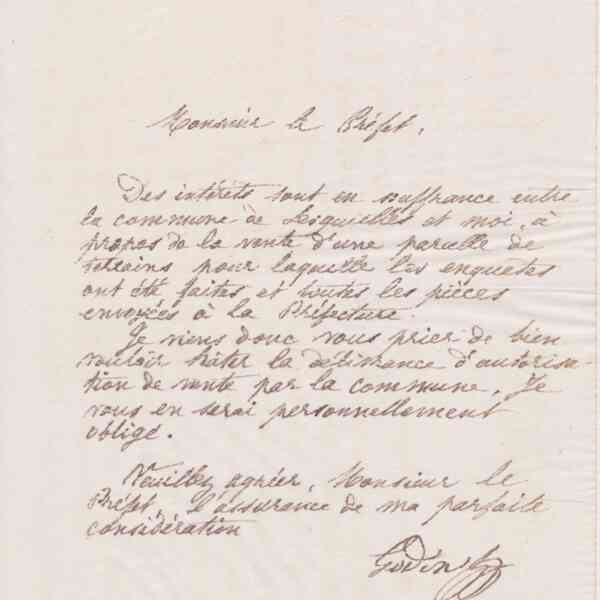 Monsieur le Préfet,
Des intérêts sont en souffrance entre
la commune de Lesquielles et moi, à
propos de la vente d'une parcelle de
terrains pour laquelle les enquêtes
ont été faites et toutes les pièces
envoyées à la Préfecture.
Je viens donc vous prier de bien
vouloir hâter la délivrance d'autorisa-
tion de vente par la commune. Je
vous en serai personnellement
obligé.
Veuillez agréer, Monsieur le
Préfet, l'assurance de ma parfaite
considération
Godin